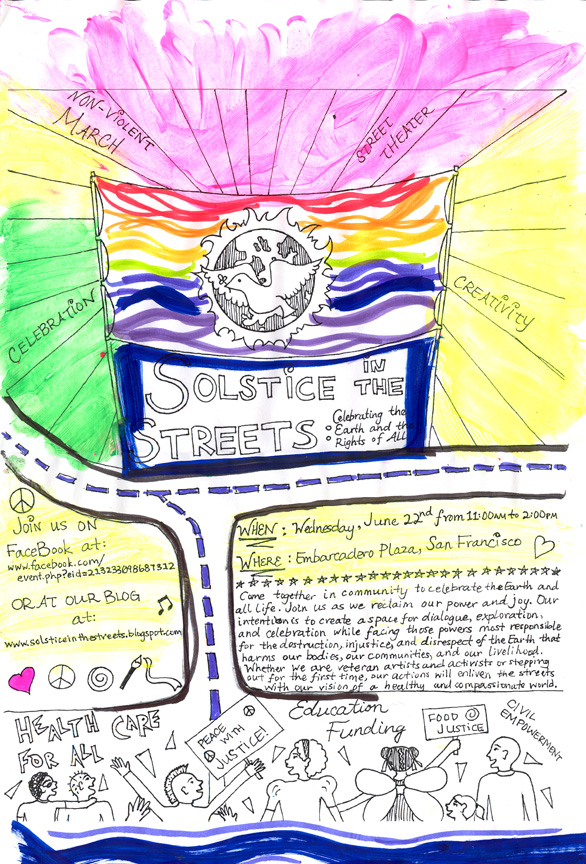 NON-VIOLENT
MARCH
STREET
THEATER
CELEBRATION
CREATIVITY
SOLSTICE IN THE
STREETS
Celebrating the
Earth and the
Rights of ALL
JOIN US ON
FACEBOOK at:
www.facebook.com/
event.php?eid=213233098687312
OR AT OUR BLOG
at:
www.solsticeinthestreets.blogspot.com
WHEN: Wednesday, June 22nd from 11:00AM to 2:00PM
WHERE: Embarcadero Plaza, San Francisco
Come together in community to celebrate the Earth and
all life. Join us as we reclaim our power and joy. Our
intention is to create a space for dialogue, exploration,
and celebration while facing those powers most responsible
for the destruction, injustice, and disrespect of the Earth that
harms our bodies, our communities, and our livelihood.
Whether we are veteran artists and activists or stepping
out for the first time, our actions will enliven the streets
with our vision of a healthy and compassionate world.
HEALTH CARE
FOR ALL
PEACE
WITH
JUSTICE!
Education
Funding
FOOD
JUSTICE
CIVIL
EMPOWERMENT